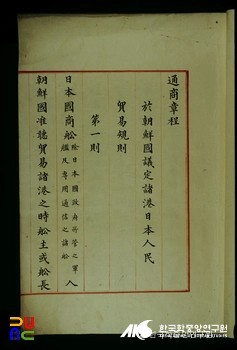 通商章程
於朝鮮國議定諸港日本人民
貿易規則
第一則
日本國商船除日本國政府所管之軍艦及專用通信之諸船入
朝鮮國准聽貿易諸港之時船主或船長
AKS 한국학중앙연구원